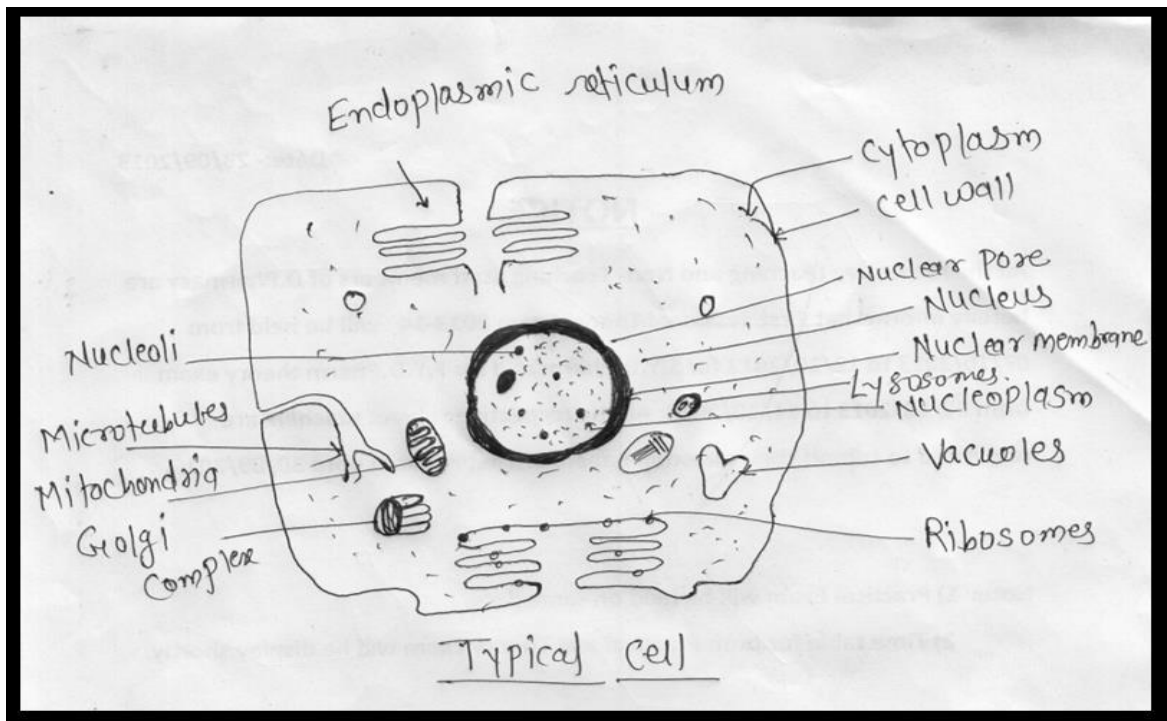 Endoplasmic reticulum
Cytoplasm
Cell wall
Nuclear pore
Nucleus
Nuclear membrane
Lysosomes
Nucleoplasm
Vacuoles
Ribosomes
Nucleoli
Microtubules
Mitochondria
Golgi
complex
Typical Cell